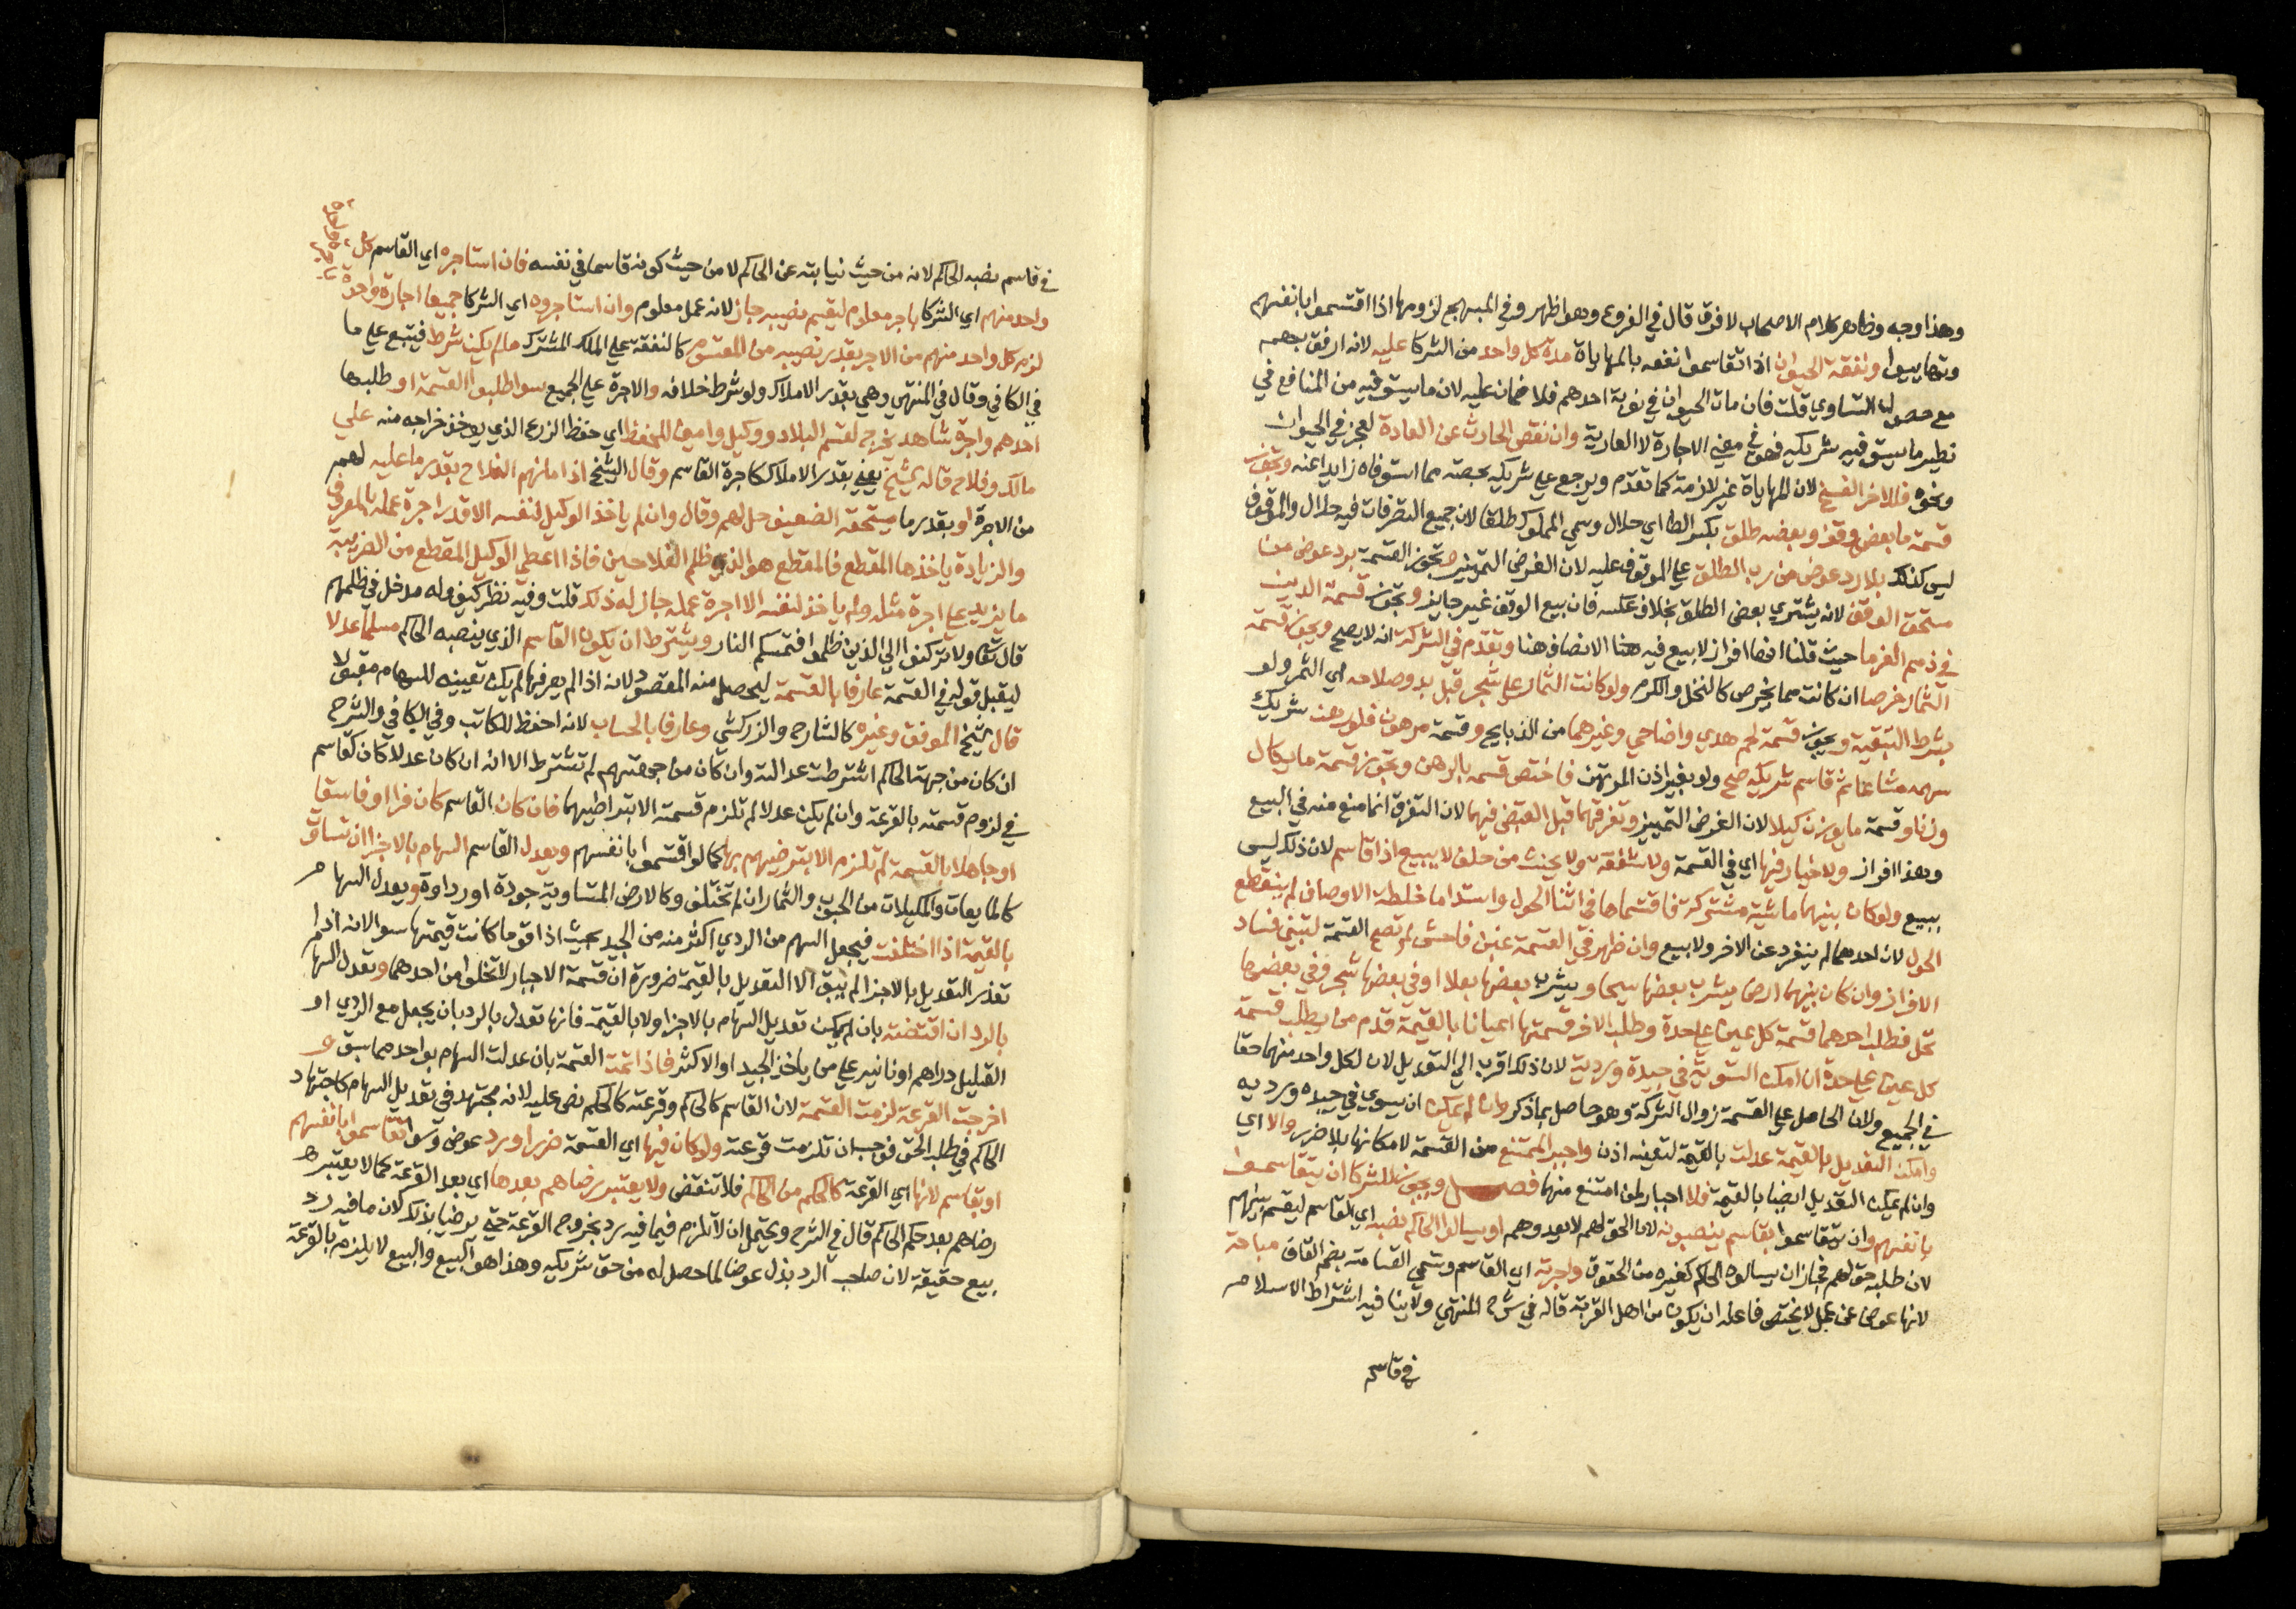 وهذا وجه وظاهر كلام الاصحاب لا فرق قال في الفروع وهو اظهر وفي المبهج لزومها اذا اقتسموا بانفسهم
وتهايبوا ونفقة الحيوان اذا تقاسموا نفعه بالمهاياة مدة كل واحد من الشركا عليه لانه ارفق بهم
مع حصول التساوي قلت فان مات الحيوان في نوبة احدهم فلا ضمان عليه لان ما يستوفيه من المنافع في
نظير ما يستوفيه شريكه فهو في معنى الاجارة لا العارية وان نقص الحادث عن العادة لعجز في الحيوان
ونحوه فللاخر الفسخ لان المهاياة غير لازمة كما تقدم ويرجع على شريكه بحصته مما استوفاه زايدا عنه وتجوز
قسمة ما بعضه وقف وبعضه طلق بكسر الطا اي حلال وسمي المملوك طلقا لان جميع التصرفات فيه حلال والموقوف
ليس كذلك بلا رد عوض من رب الطلق على الموقوف عليه لان الغرض التمييز وتجوز القسمة برد عوض من
مستحق الوقف لانه يشتري بعض الطلق بخلاف عكسه فان بيع الوقف غير جايز وتجوز قسمة الدين
في ذمم الغرما حيث قلنا انها افراز لا بيع فيه هنا الانصاف هنا وتقدم في الشركة انه لا يصح ويجوز قسمة
الثمار خرصا ان كانت مما يخرص كالنخل والكرم ولو كانت الثمار على شجر قبل بدو صلاحه اي الثمر ولو
بشرط التبقية ويجوز قسمة لحم هدي واضاحي وغيرهما من الذبايح وقسمة مرهون فلو رهن شريك
سهمه مشاعا ثم قاسم شريكه صح ولو بغير اذن المرتهن فاختص قسمه بالرهن وتجوز قسمة ما يكال
وزنا وقسمة ما يوزن كيلا لان الغرض التمييز وتفرقهما قبل القبض فيهما لان التفرق انما منع منه في البيع
وهذا افراز ولا خيار فيها اي في القسمة ولا شفعة ولا يحنث من حلف لا يبيع اذا قاسم لان ذلك ليس
ببيع ولو كان بينهما ماشية مشتركة فاقتسماها في اثنا الحول واستداما خلطة الاوصاف لم ينقطع
الحول لان احدهما لم ينفرد عن الاخر ولا بيع وان ظهر في القسمة غبن فاحش لم تصح القسمة لتبين فساد
الافراز وان كان بينهما ارض يشرب بعضها سيحا ويشرب بعضها بعلا او في بعضها شجر وفي بعضها
نخل فطلب احدهما قسمة كل عين على حدة وطلب الاخر قسمتها اعيانا بالقيمة قدم من يطلب قسمة
كل عين على حدة ان امكن التسوية في جيدة وردية لان ذلك اقرب الى التعديل لان لكل واحد منهما حقا
في الجميع ولان الحامل على القسمة زوال الشركة وهو حاصل بما ذكر وان لم يمكن ان يسوي في جيده ورديه
وامكن التعديل بالقيمة عدلت بالقيمة لتعينه اذن واجبر الممتنع من القسمة لامكانها بلا ضرر والا اي
وان لم يمكن التعديل ايضا بالقيمة فلا اجبار لمن امتنع منها فصل ويجوز للشركا ان يتقاسموا
بانفسهم وان يتقاسموا بقاسم ينصبونه لان الحق لهم لا يعدوهم او يسالوا الحاكم نصبه اي القاسم ليقسم بينهم
لان طلبه حق لهم فجاز ان يسالوه الحاكم كغيره من الحقوق واجرته اي القاسم وتسمى القسامة بضم القاف مباحة
لانها عوض عن عمل لا يختص فاعله ان يكون من اهل القربة قاله في شرح المنتهى ولا ينافيه اشتراط الاسلام
في قاسم
في قاسم نصبه الحاكم لانه من حيث نيابته عن الحاكم لا من حيث كونه قاسما في نفسه فان استاجره اي القاسم كل
واحد منهم اي الشركا باجر معلوم ليقسم نصيبه جاز لانه عمل معلوم وان استاجروه اي الشركا جميعا اجارة واحدة
لزم كل واحد منهم من الاجر بقدر نصيبه من المقسوم كالنفقة على الملك المشترك ما لم يكن شرط فيتبع على ما
في الكافي وقال في المنتهى وهي بقدر الاملاك ولو شرط خلافه والاجرة على الجميع سوا طلبوا القسمة او طلبها
احدهم واجرة شاهد يخرج لقسم البلاد ووكيل وامين للحفظ اي حفظ الزرع الذي يوخذ خراجه منه على
مالك وفلاح قاله الشيخ يعني بقدر الاملاك كاجرة القاسم وقال الشيخ اذا مانهم الفلاح بقدر ما عليه لهم
من الاجرة او بقدر ما يستحقه الضعيف حل لهم وقال وان لم ياخذ الوكيل لنفسه الا قدر اجرة عمله بالمعروف
والزيادة ياخذها المقطع فالمقطع هو الذي ظلم الفلاحين فاذا اعطى الوكيل المقطع من الضريبة
ما يزيد على اجرة مثله ولم ياخذ لنفسه الا اجرة عمله جاز له ذلك قلت وفيه نظر كيف وله مدخل في ظلمهم
قال تعالى ولا تركنوا الى الذين ظلموا فتمسكم النار ويشترط ان يكون القاسم الذي ينصبه الحاكم مسلما عدلا
ليقبل قوله في القسمة عارفا بالقسمة ليحصل منه المقصود لانه اذا لم يعرفها لم يكن تعيينه للسهام مقبولا
قال الشيخ الموفق وغيره كالشارح والزركشي وعارفا بالحساب لانه احفظ للكاتب وفي الكافي والشرح
ان كان من جهة الحاكم اشترطت عدالته وان كان من جهتهم لم تشترط الا انه ان كان عدلا كان كقاسم
في لزوم قسمته بالقرعة وان لم يكن عدلا لم تلزم قسمته الا بتراضيهما فان كان القاسم كافرا او فاسقا
او جاهلا بالقسمة لم تلزم الا بتراضيهم بها كما لو اقتسموا بانفسهم ويعدل القاسم السهام بالاجزا ان تساوت
كالمايعات والمكيلات من الحبوب والثمار ان لم تختلف وكالارض المتساوية جودة او رداوة ويعدل السهام
بالقيمة اذا اختلفت فيجعل السهم من الردي اكثر منه من الجيد بحيث اذا قوما كانت قيمتها سوا لانه اذا
تعذر التعديل بالاجزا لم يبق الا التعديل بالقيمة ضرورة ان قسمة الاجبار لا تخلوا من احدهما وتعدل السهام
بالرد ان اقتضته بان لم يمكن تعديل السهام بالاجزا ولا بالقيمة فانها تعدل بالرد بان يجعل مع الردي او
القليل دراهم او دنانير على من ياخذ الجيد او الاكثر فاذا تمت القسمة بان عدلت السهام بواحد مما سبق و
اخرجت القرعة لزمت القسمة لان القاسم كالحاكم وقرعته كالحكم نص عليه لانه مجتهد في تعديل السهام كاجتهاد
الحاكم في طلب الحق فوجب ان تلزمت قرعته ولو كان فيها اي القسمة ضرر او رد عوض وسوا تقاسموا بانفسهم
او بقاسم لانها اي القرعة كالحكم من الحاكم فلا تنقض ولا يعتبر رضاهم بعدها اي بعد القرعة كما لا يعتبر
رضاهم بعد حكم الحاكم قال في الشرح ويحتمل ان لا تلزم فيما فيه رد بخروج القرعة حتى يرضيا بذلك لان ما فيه رد
بيع حقيقة لان صاحب الرد بذل عوضا لما حصل له من حق شريكه وهذا هو البيع والبيع لا يلزم بالقرعة